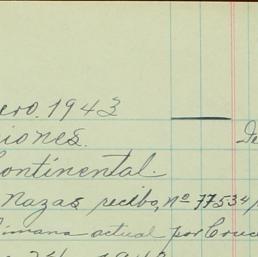 ero. 1943
iones.
ontinental.
Nazas, recibo, nº 77534
imana actual por
1943